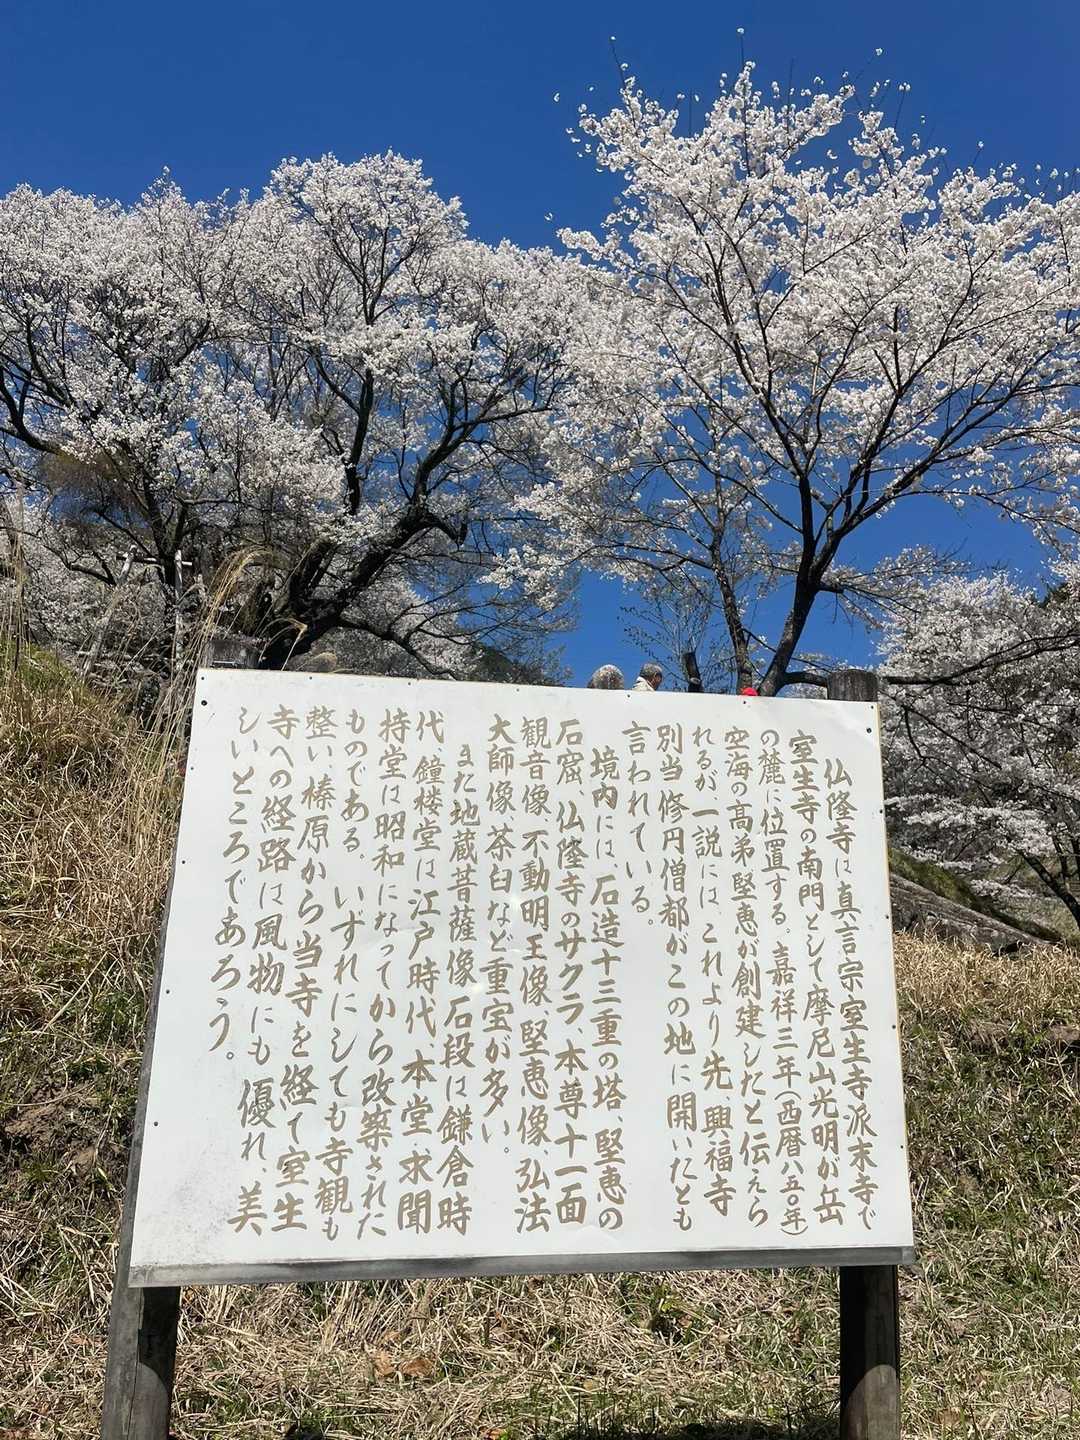 仏隆寺は真言宗室生寺派末寺で
室生寺の南門として摩尼山光明が岳
の麓に位置する。嘉祥三年(西暦八五〇年)
空海の高弟堅恵が創建したと伝えら
れるが、一説には、これより先、興福寺
別当修円僧都がこの地に開いたとも
言われている。
境内には、石造十三重の塔、堅恵の
石窟、仏隆寺のサクラ、本尊十一面
観音像、不動明王像、堅恵像、弘法
大師像、茶臼など重宝が多い。
また地蔵菩薩像、石段は鎌倉時
代、鐘楼堂は江戸時代、本堂、求聞
持堂は昭和になってから改築された
ものである。いずれにしても寺観も
整い、榛原から当寺を経て室生
寺への経路は風物にも優れ、美
しいところであろう。